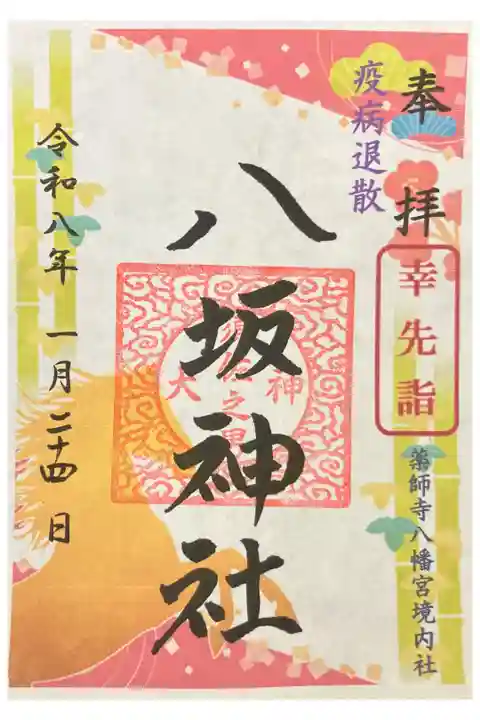 奉拝
疫病退散
幸先詣
薬師寺八幡宮境内社
八坂神社
大神
令和八年一月二十四日